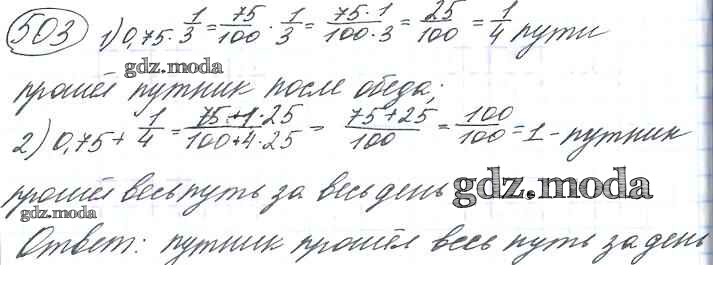 503 1) 0,75 · 1/3 = 75/100 · 1/3 = 75 · 1/100 · 3 = 25/100 = 1/4 пути
gdz.moda
прошёл путник после обеда;
2) 0,75 + 1/4 = 75 + 1 · 25/100 + 4 · 25 = 75 + 25/100 = 100/100 = 1 - путник
прошёл весь путь за весь день gdz.moda
gdz.moda
Ответ: путник прошёл весь путь за день